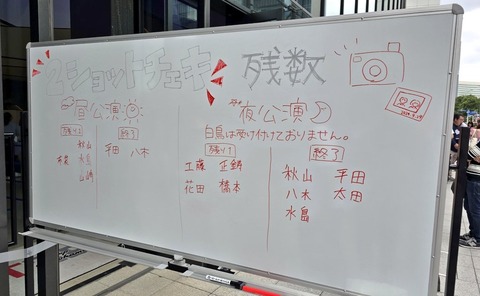 2ショットチェキ 残数
昼公演
残り1 終了
秋山 平田 八木
水島
夜公演
白鳥は受け付けておりません。
残り1 終了
工藤 正鋳 秋山 平田
花田 橋本 八木 太田
水島